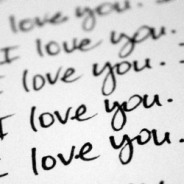 love you.
I love you.
I love you.
I love you.
I love you.